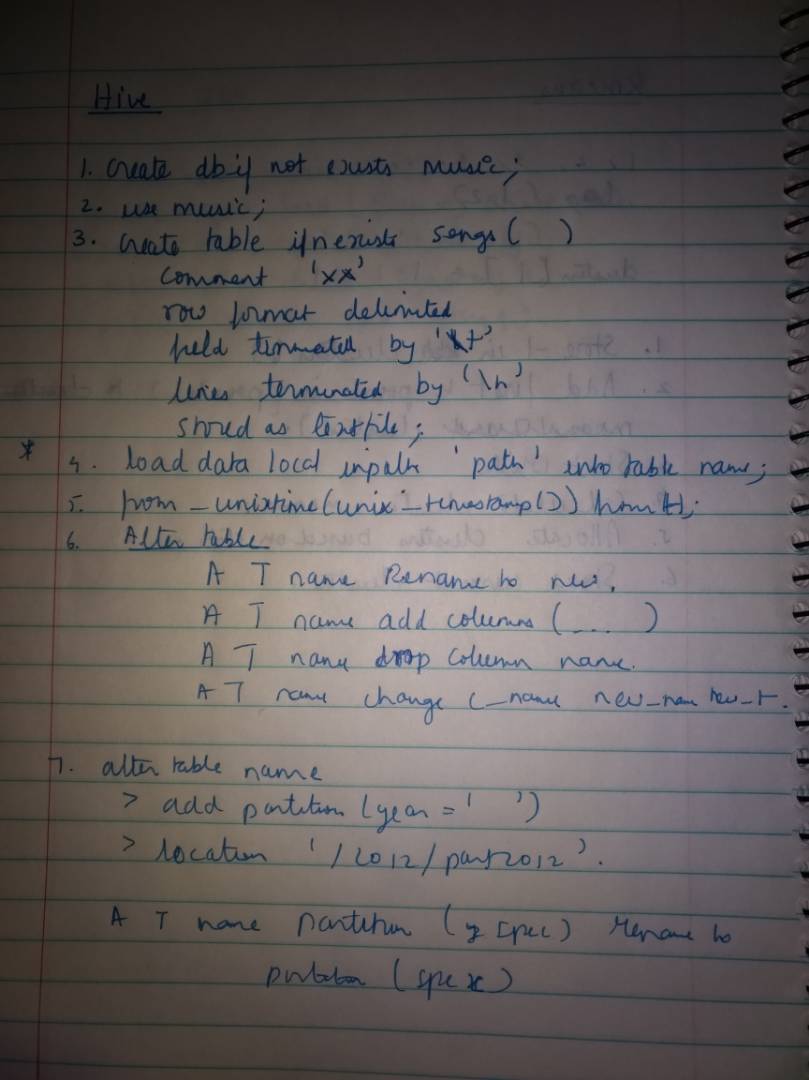 Hive
1. Create db if not exists music;
2. use music;
3. Create table ifnexists songs ( )
comment 'xx'
row format delimited
field terminated by '\t'
lines terminated by '\n'
stored as textfile;
* 4. load data local inpath 'path' into table name;
5. from_unixtime(unix_timestamp()) from
6. Alter table
A T name Rename to new.
A T name add columns (...)
A T name drop column name.
A T name change c_name new_name new_t.
7. alter table name
> add partition (year = ' ')
> location '/2012/part2012'.
A T name partition ( spec) rename to
partition (spec)